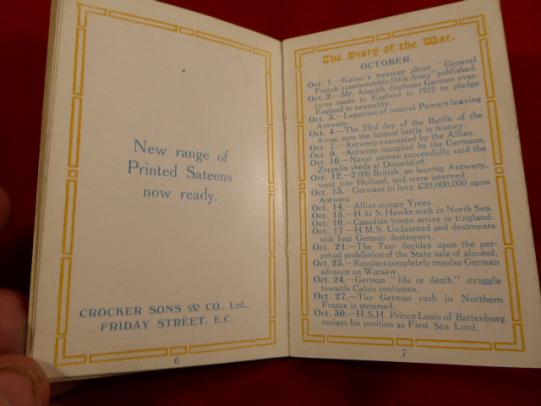 New range of
Printed Sateens
now ready.
CROCKER SONS & CO., Ltd.,
FRIDAY STREET, E.C.
6
The Diary of the War.
OCTOBER.
Oct. 1.—Kaiser's message about "General
French's contemptible little Army" published.
Oct. 2.—Mr. Asquith discloses German over-
tures made to England in 1912 to pledge
England to neutrality.
Oct. 3.—Legations of neutral Powers leaving
Antwerp.
Oct. 4.—The 23rd day of the Battle of the
Aisne, now the longest battle in history.
Oct. 7.—Antwerp evacuated by the Allies.
Oct. 9.—Antwerp occupied by the Germans.
Oct. 10.—Naval airmen successfully raid the
Zeppelin sheds at Dusseldorf.
Oct. 12.—2,000 British, on leaving Antwerp,
went into Holland, and were interned.
Oct. 13.—Germans to levy £20,000,000 upon
Antwerp
Oct. 14.—Allies occupy Ypres.
Oct. 15.—H.M.S. Hawke sunk in North Sea.
Oct. 16.—Canadian troops arrive in England.
Oct. 17—H.M.S. Undaunted and destroyers
sink four German destroyers.
Oct. 21.—The Tsar decides upon the per-
petual prohibition of the State sale of alcohol.
Oct. 23.—Russians completely repulse German
advance on Warsaw.
Oct. 24.—German "life or death" struggle
towards Calais continues.
Oct. 27.—The German rush in Northern
France is stemmed.
Oct. 30.—H.S.H. Prince Louis of Battenburg
resigns his position as First Sea Lord.
7